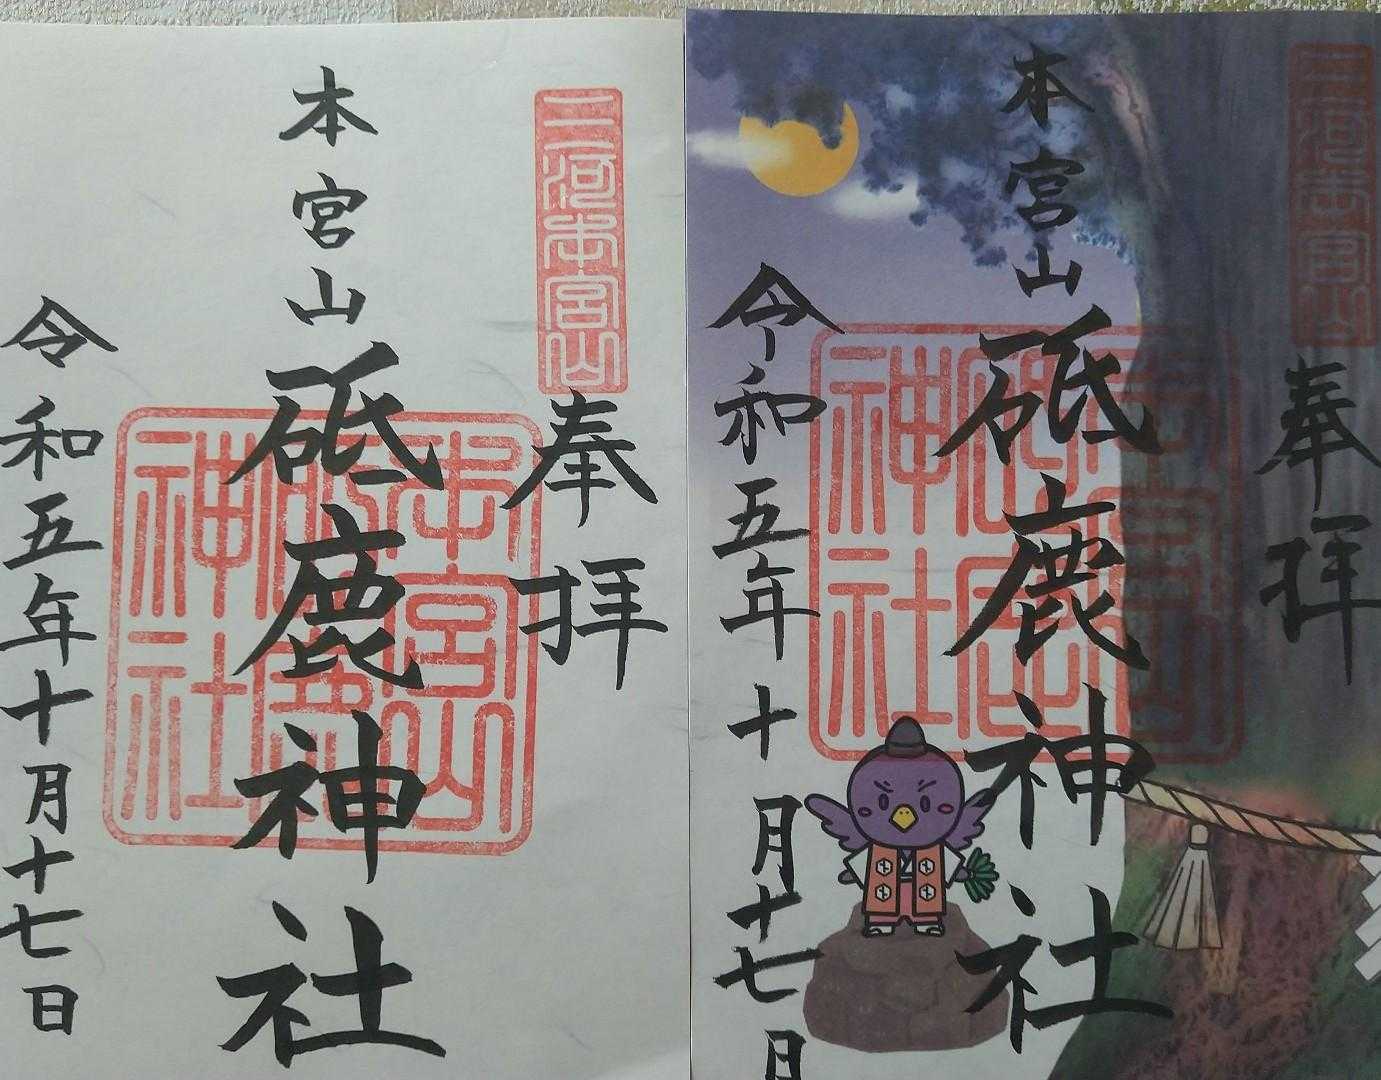 三河本宮山
奉拝
本宮山
砥鹿神社
本宮山砥鹿神社
令和五年十月十七日
三河本宮山
奉拝
本宮山
砥鹿神社
本宮山砥鹿神社
令和五年十月十七日